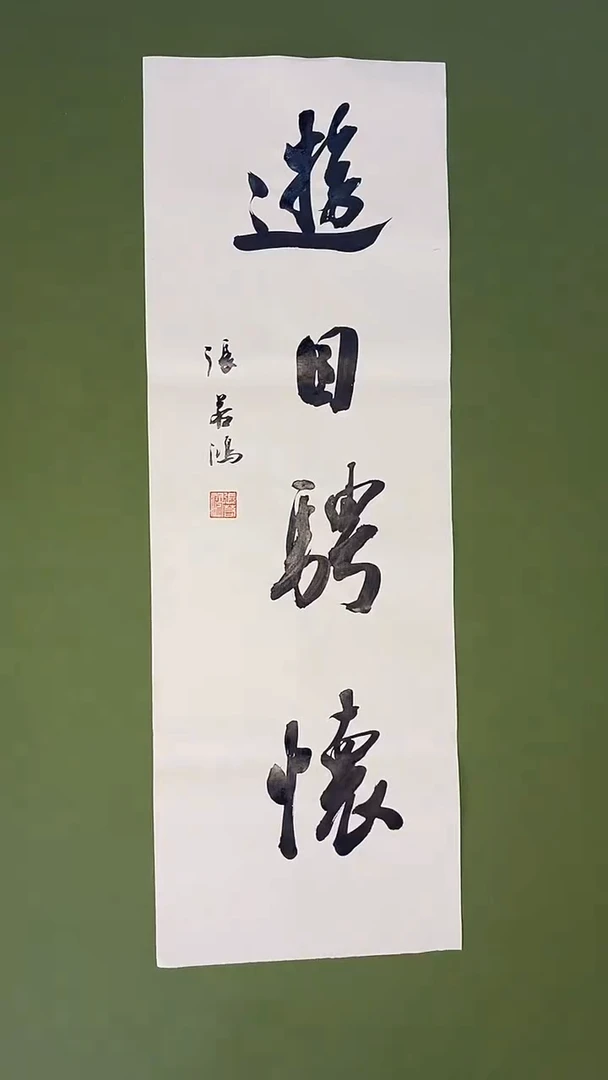 遊目騁懷
張若鴻